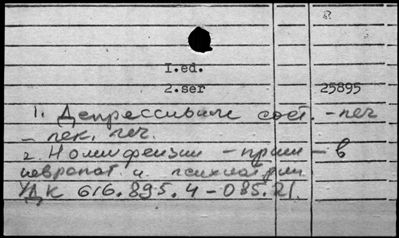 I.ed.
2.ser 25895
1. Депрессивные сост. - леч
- лек. леч.
2. Ноомифензин - прим - в
невропат и психиатрии
УДК 616.895.4-085.21.